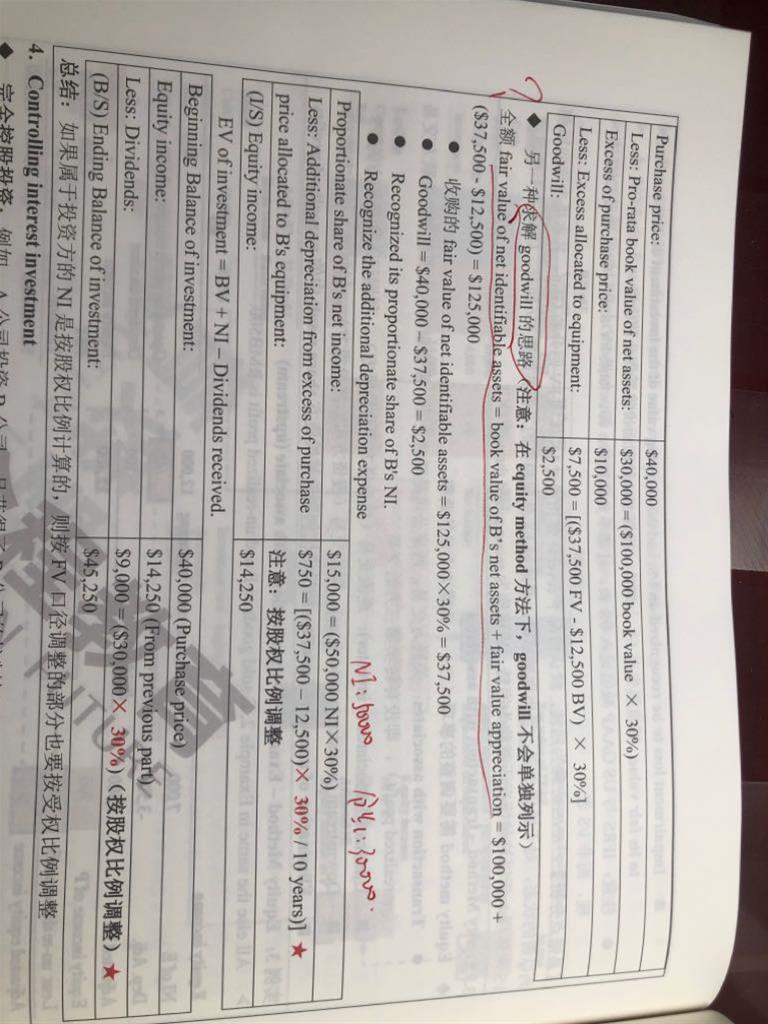 Purchase price: $40,000
Less: Pro-rata book value of net assets: $30,000 = ($100,000 book value × 30%)
Excess of purchase price: $10,000
Less: Excess allocated to equipment: $7,500 = [($37,500 FV - $12,500 BV) × 30%]
Goodwill: $2,500
?
◆ 另一种求解 goodwill 的思路（注意：在 equity method 方法下，goodwill 不会单独列示）
全额 fair value of net identifiable assets = book value of B's net assets + fair value appreciation = $100,000 +
($37,500 - $12,500) = $125,000
● 收购的 fair value of net identifiable assets = $125,000×30% = $37,500
● Goodwill = $40,000 – $37,500 = $2,500
● Recognized its proportionate share of B's NI.
● Recognize the additional depreciation expense
NI: 50000
Proportionate share of B's net income: $15,000 = ($50,000 NI×30%)
Less: Additional depreciation from excess of purchase $750 = [($37,500 – 12,500)× 30% / 10 years)] ★
price allocated to B's equipment: 注意：按股权比例调整
(I/S) Equity income: $14,250
EV of investment = BV + NI – Dividends received.
Beginning Balance of investment: $40,000 (Purchase price)
Equity income: $14,250 (From previous part)
Less: Dividends: $9,000 = ($30,000× 30%)（按股权比例调整）★
(B/S) Ending Balance of investment: $45,250
总结：如果属于投资方的 NI 是按股权比例计算的，则按 FV 口径调整的部分也要按受权比例调整
4. Controlling interest investment
◆ 完全控股投资，例如，A 公司投资 B 公司